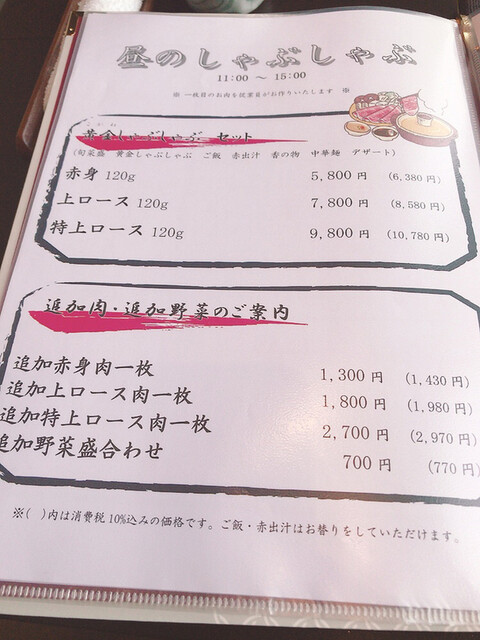 昼のしゃぶしゃぶ
11:00 ～ 15:00
※ 一枚目のお肉を従業員がお作りいたします ※
黄金しゃぶしゃぶ セット
(旬菜盛 黄金しゃぶしゃぶ ご飯 赤出汁 香の物 中華麺 デザート)
赤身 120g 5,800 円 (6,380円)
上ロース 120g 7,800 円 (8,580円)
特上ロース 120g 9,800 円 (10,780円)
追加肉・追加野菜のご案内
追加赤身肉一枚 1,300 円 (1,430円)
追加上ロース肉一枚 1,800 円 (1,980円)
追加特上ロース肉一枚 2,700 円 (2,970円)
追加野菜盛合わせ 700 円 (770円)
※( )内は消費税10%込みの価格です。ご飯・赤出汁はお替りをしていただけます。